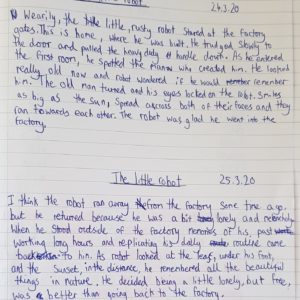 robot
24.3.20
Wearily, the little, rusty robot stared at the factory
gates. This is home, where he was built. He trudged slowly to
the door and pulled the heavy duty handle down. As he entered
the first room, he spotted the man who created him. He looked
really old now and robot wondered if he would remember
him. The old man turned and his eyes locked on the robot. Smiles
as big as the sun, spread across both of their faces and they
ran towards each other. The robot was glad he went into the
factory.
The little robot 25.3.20
I think the robot ran away from the factory some time ago.
but he returned because he was a bit lonely and melancholy
When he stood outside of the factory memories of his past
working long hours and replicating his daily routine came
back to him. As robot looked at the leaf, under his foot,
and the sunset, in the distance, he remembered all the beautiful
things in nature. He decided being a little lonely, but free,
was better than going back to the factory.